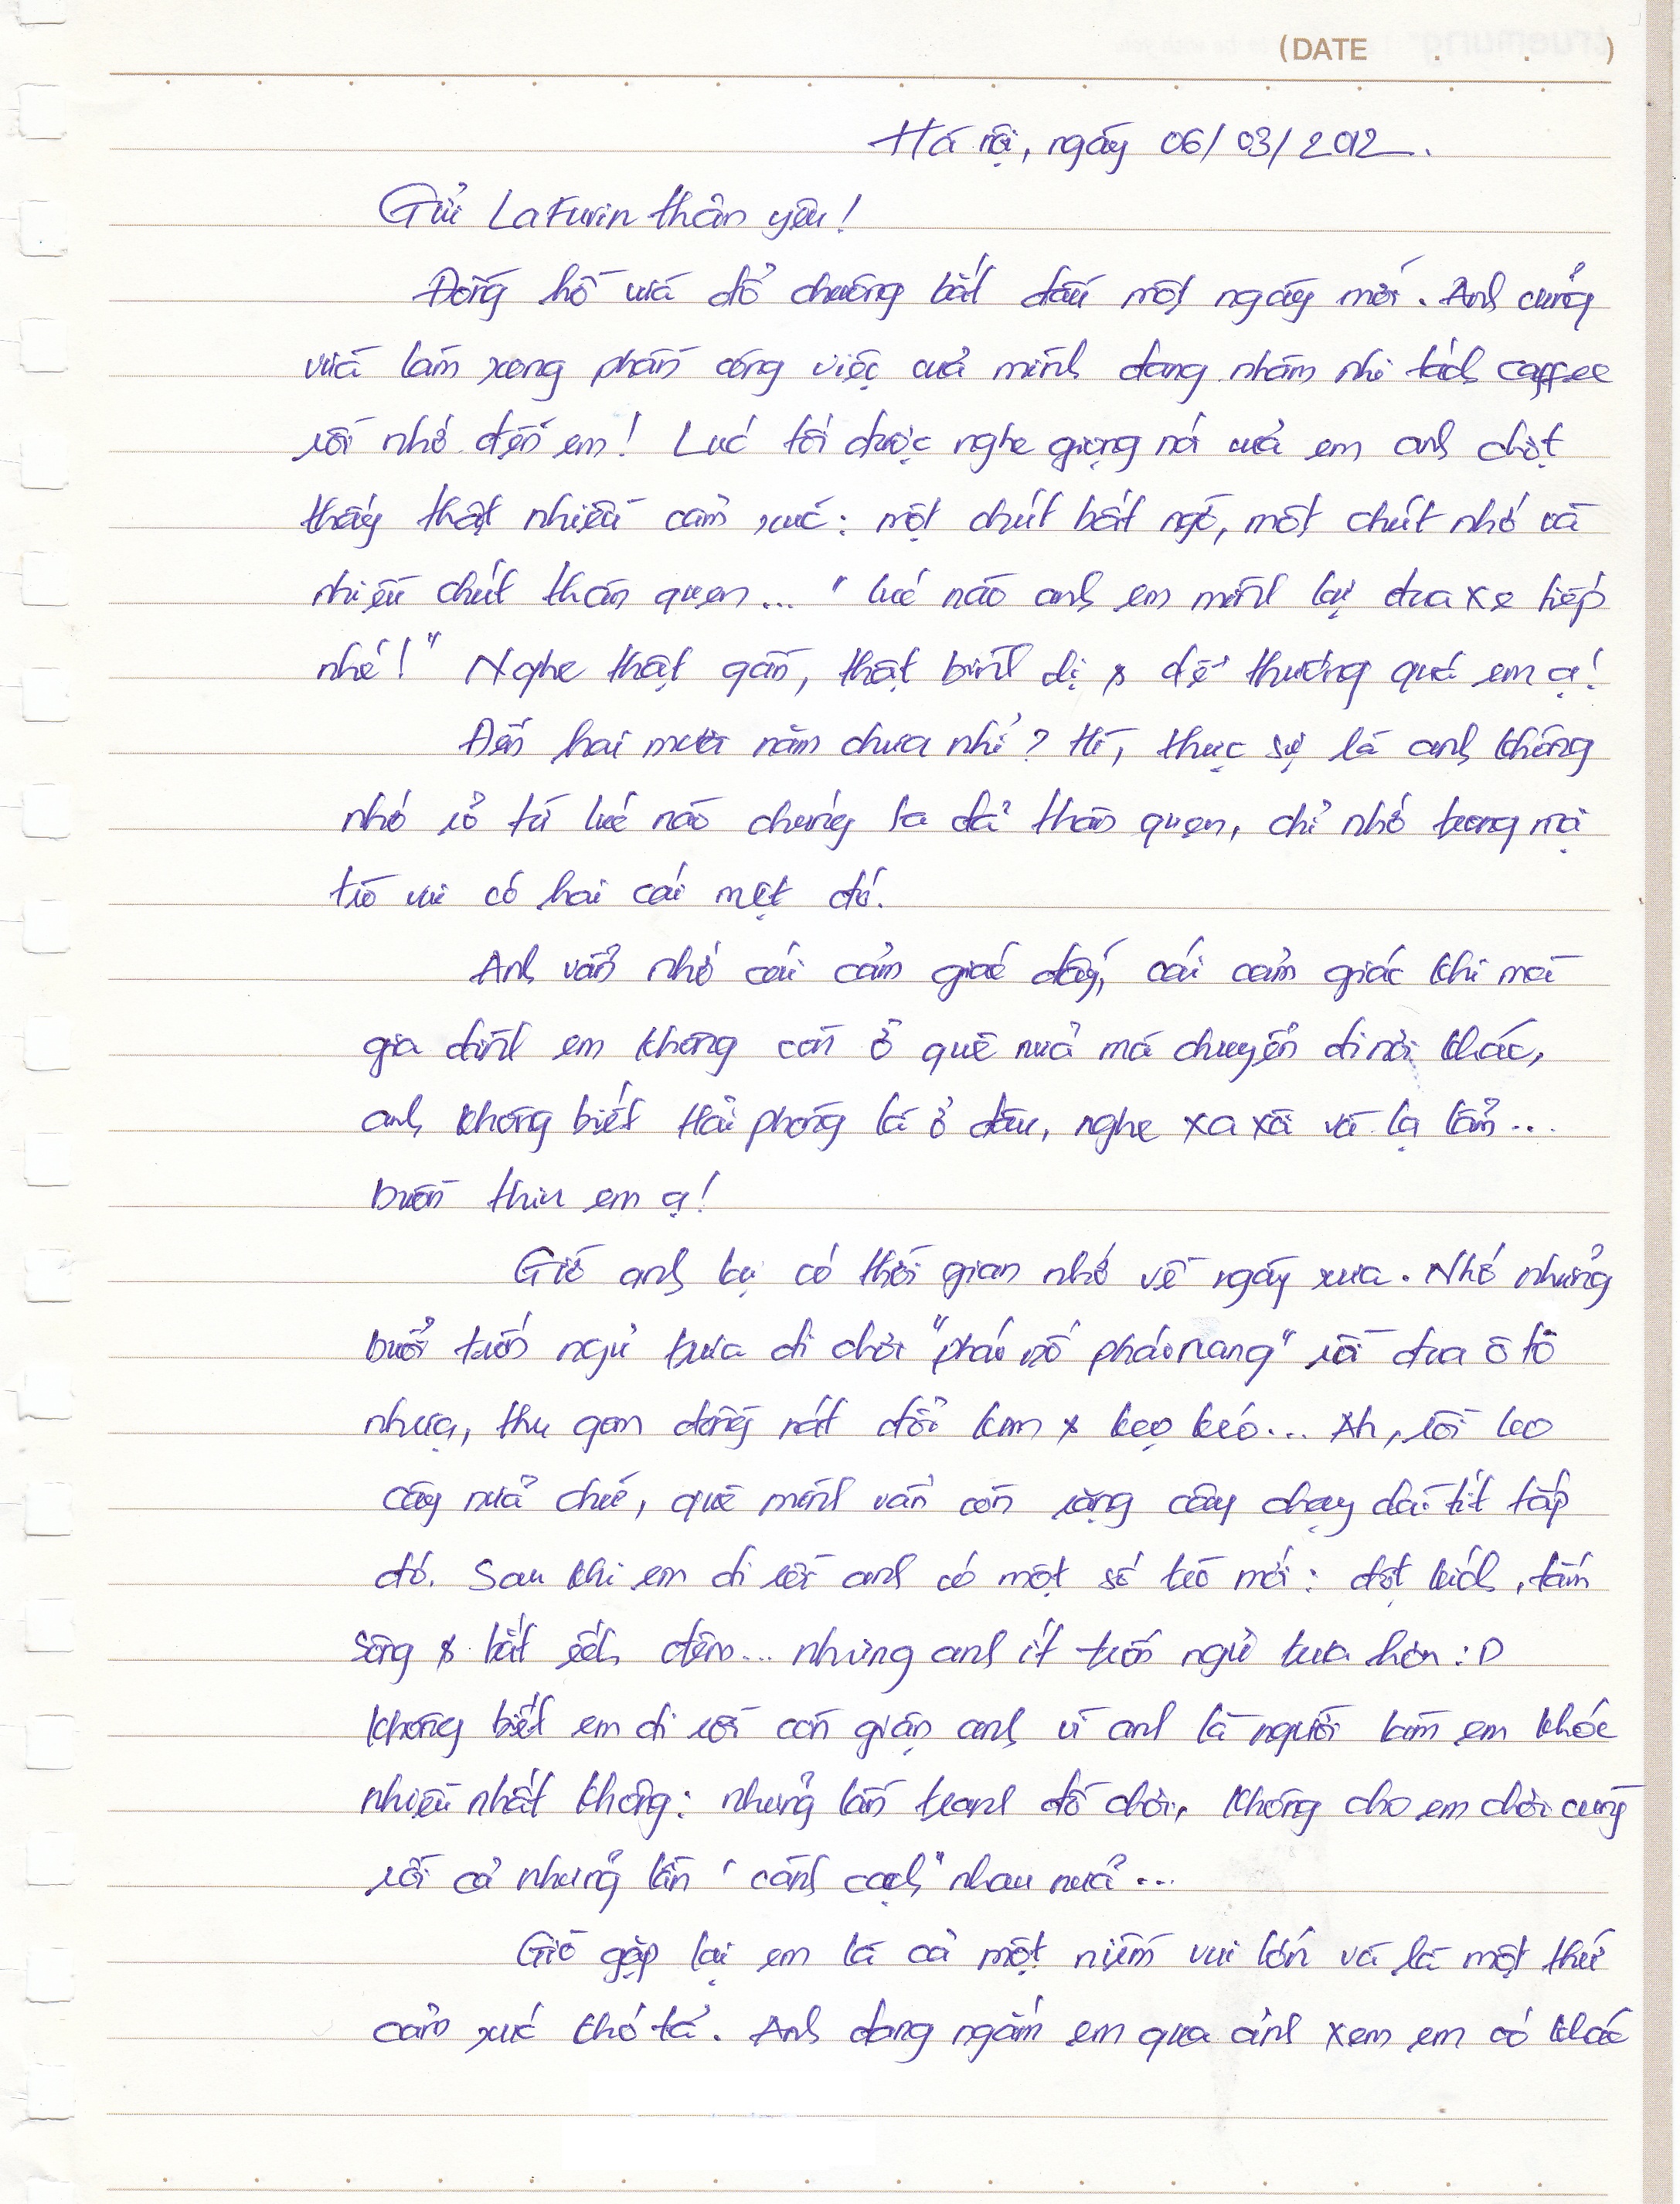 (DATE . . )
Hà nội, ngày 06/03/2012.
Gửi LaFurin thân yêu!
Đồng hồ vừa đổ chuông bắt đầu một ngày mới. Anh cũng
vừa làm xong phần công việc của mình đang nhâm nhi tách caffee
rồi nhớ đến em! Lúc tối được nghe giọng nói của em anh chợt
thấy thật nhiều cảm xúc: một chút bất ngờ, một chút nhớ và
nhiều chút thân quen... "lúc nào anh em mình lại đua xe tiếp
nhé!" Nghe thật gần, thật bình dị & dễ thương quá em ạ!
Đến hai mươi năm chưa nhỉ? Hì, thực sự là anh không
nhớ rõ từ lúc nào chúng ta đã thân quen, chỉ nhớ trong mọi
trò vui có hai cái mẹt đó.
Anh vẫn nhớ cái cảm giác đấy, cái cảm giác khi mà
gia đình em không còn ở quê nữa mà chuyển đi nơi khác,
anh không biết Hải phòng là ở đâu, nghe xa xôi và lạ lẫm...
buồn thiu em ạ!
Giờ anh lại có thời gian nhớ về ngày xưa. Nhớ những
buổi trốn ngủ trưa đi chơi "pháo nổ pháo nang" rồi đua ô tô
nhựa, thu gom đồng nát đổi kem & kẹo kéo... Ah, rồi leo
cây nữa chứ, quê mình vẫn còn rặng cây chạy dài tít tắp
đó. Sau khi em đi rồi anh có một số trò mới: đột kích, tắm
sông & bắt ếch đêm... nhưng anh ít trốn ngủ trưa hơn :D
Không biết em đi rồi còn giận anh vì anh là người làm em khóc
nhiều nhất không: những lần tranh đồ chơi, không cho em chơi cùng
rồi cả những lần "cành cạch" nhau nữa...
Giờ gặp lại em là cả một niềm vui lớn và là một thứ
cảm xúc khó tả. Anh đang ngắm em qua ảnh xem em có khác